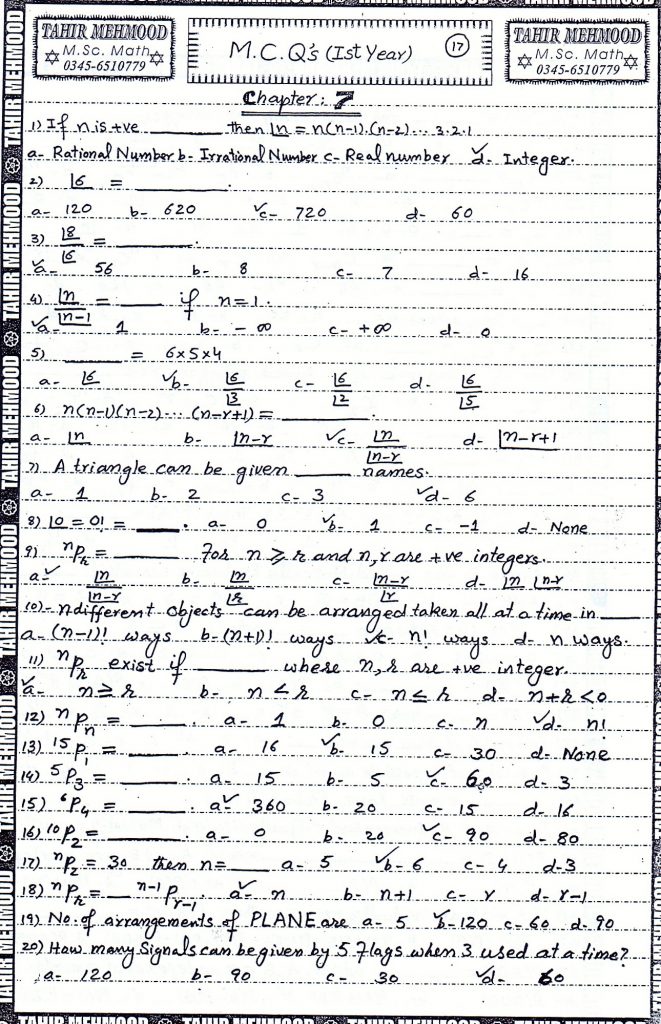 TAHIR MEHMOOD
M.Sc. Math
0345-6510779
M.C.Q's (Ist Year) 17
TAHIR MEHMOOD
M.Sc. Math
0345-6510779
Chapter: 7
1) If n is +ve ______ then |n = n(n-1).(n-2)... 3.2.1
a- Rational Number b- Irrational Number c- Real number ✓d- Integer.
2) |6 = ______.
a- 120 b- 620 ✓c- 720 d- 60
3) |8/|6 = ______.
✓a- 56 b- 8 c- 7 d- 16
4) |n/|n-1 = ____ if n=1.
✓a- 1 b- -∞ c- +∞ d- 0
5) ______ = 6×5×4
a- |6 ✓b- |6/|3 c- |6/|2 d- |6/|5
6) n(n-1)(n-2)... (n-r+1) = ______.
a- |n b- |n-r ✓c- |n/|n-r d- |n-r+1
7) A triangle can be given ____ names.
a- 1 b- 2 c- 3 ✓d- 6
8) |0 = 0! = ____. a- 0 ✓b- 1 c- -1 d- None
9) ⁿPr = ____ For n ≥ r and n,r are +ve integers.
a-✓ |n/|n-r b- |n/|r c- |n-r/|r d- |n |n-r
10)- n different objects can be arranged taken all at a time in ____
a- (n-1)! ways b- (n+1)! ways ✓c- n! ways d- n ways.
11) ⁿPr exist if ______ where n,r are +ve integer.
✓a- n≥r b- n<r c- n≤r d- n+r<0
12) ⁿPn = ____. a- 1 b- 0 c- n ✓d- n!
13) ¹⁵P₁ = ____. a- 16 ✓b- 15 c- 30 d- None
14) ⁵P₃ = ____. a- 15 b- 5 ✓c- 60 d- 3
15) ⁶P₄ = ____. a-✓ 360 b- 20 c- 15 d- 16
16) ¹⁰P₂ = ____. a- 0 b- 20 ✓c- 90 d- 80
17) ⁿP₂ = 30 then n= ____ a- 5 ✓b- 6 c- 4 d-3
18) ⁿPr = __ ⁿ⁻¹Pr-1. a-✓ n b- n+1 c- r d- r-1
19) No. of arrangements of PLANE are a- 5 ✓b-120 c- 60 d- 90
20) How many Signals can be given by 5 Flags when 3 used at a time?
a- 120 b- 90 c- 30 ✓d- 60
TAHIR MEHMOOD
TAHIR MEHMOOD
TAHIR MEHMOOD
TAHIR MEHMOOD
TAHIR MEHMOOD
TAHIR MEHMOOD